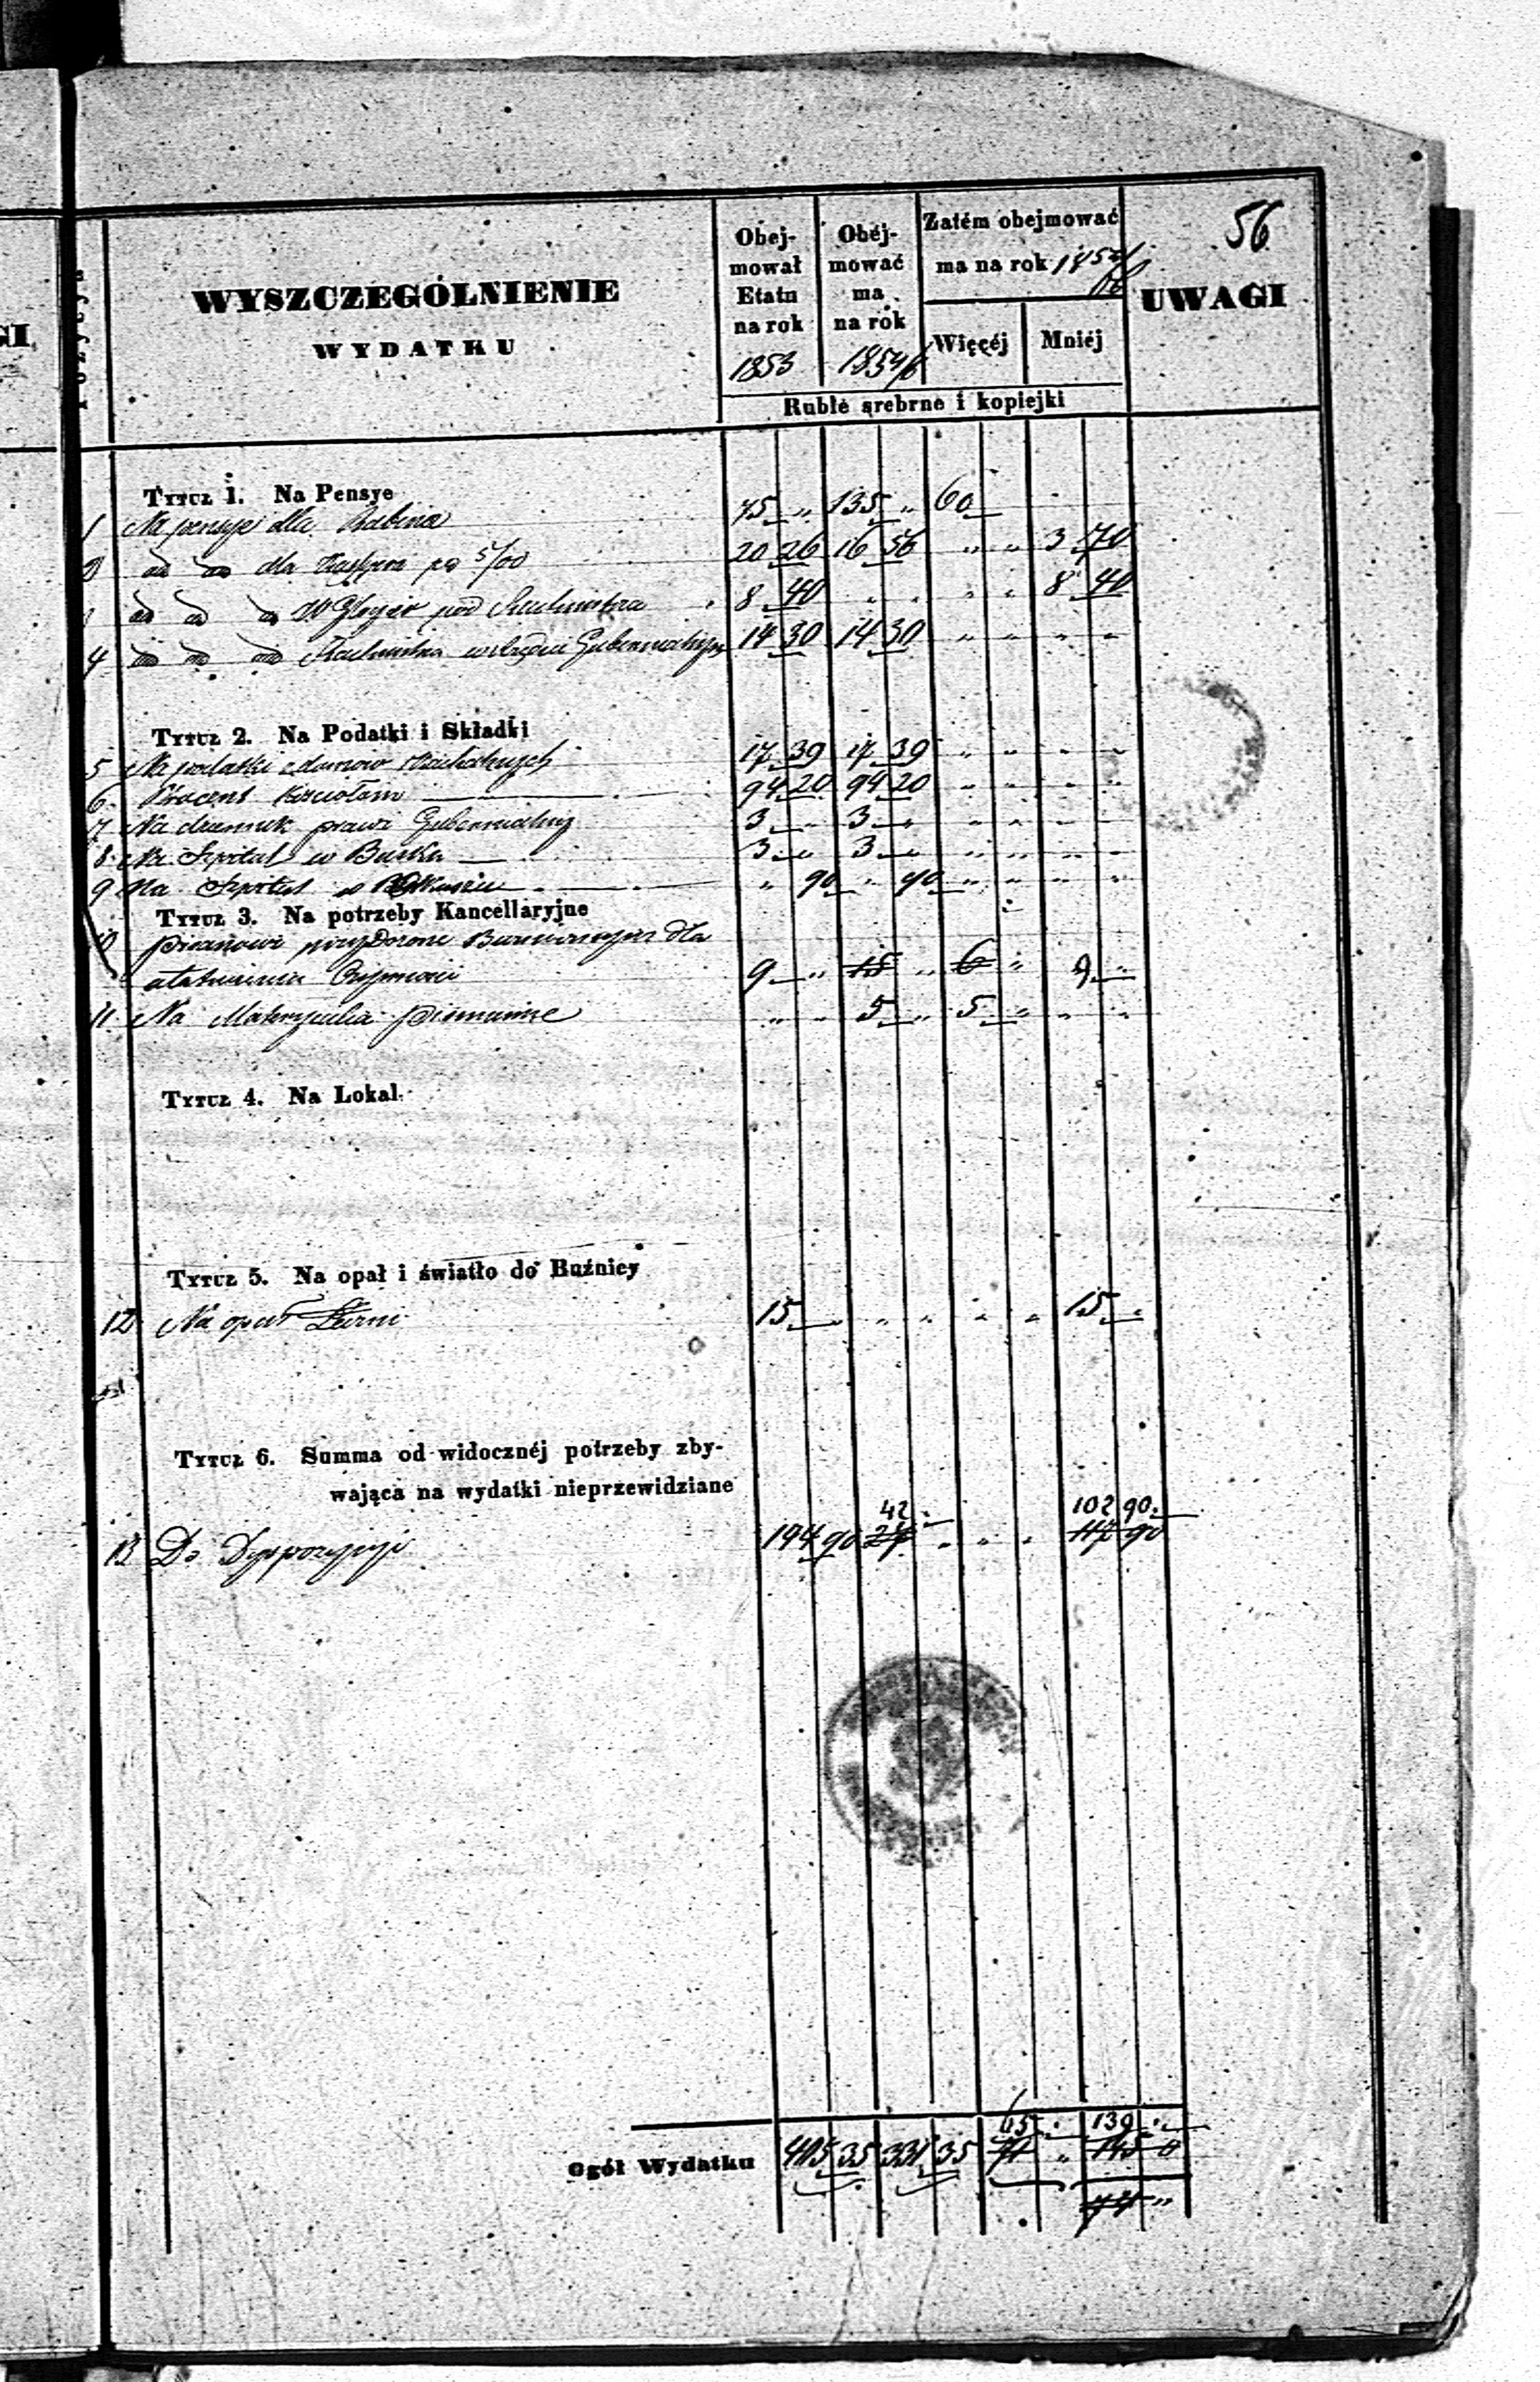 56
GI
Pozycya
WYSZCZEGÓLNIENIE
WYDATKU
Obej-
mował
Etatu
na rok
1853
Obéj-
mować
ma
na rok
1854/6
Zatém obejmować
ma na rok 1854/6
Więcéj
Mniéj
UWAGI
Ruble srebrne i kopiejki
Tytuł 1. Na Pensye
1 Na pensye dla Rabina 75 „ 135 „ 60
2 dla Kassyera po 5/00 20 26 16 56 „ „ 3 70
8 40 „ „ „ „ 8 40
4 14 30 14 30 „ „ „ „
Tytuł 2. Na Podatki i Składki
5 Na podatki z domów 17 39 17 39 „ „ „ „
6 Procent Kościołom 94 20 94 20 „ „ „ „
7 Na dziennik praw i Gubernialny 3 „ 3 „ „ „ „ „
8 Na Szpital w Busku 3 „ 3 „ „ „ „ „
9 Na Szpital w Olkuszu „ 90 „ 90 „ „ „ „
Tytuł 3. Na potrzeby Kancellaryjne
10 dla
ułatwienia 9 „ 15 „ 6 „ 9 „
11 Na Materyalia Piśmienne „ „ 5 „ 5 „ „ „
Tytuł 4. Na Lokal.
Tytuł 5. Na opał i światło do Buźnicy
12 Na opał Łaźni 15 „ „ „ „ „ 15 „
Tytuł 6. Summa od widocznéj potrzeby zby-
wająca na wydatki nieprzewidziane
42 „ 102 90
13 Do Dyspozycyi 194 90 27 „ „ „ 117 90
65 „ 139 „
Ogół Wydatku 405 35 331 35 71 „ 145 „
74 „